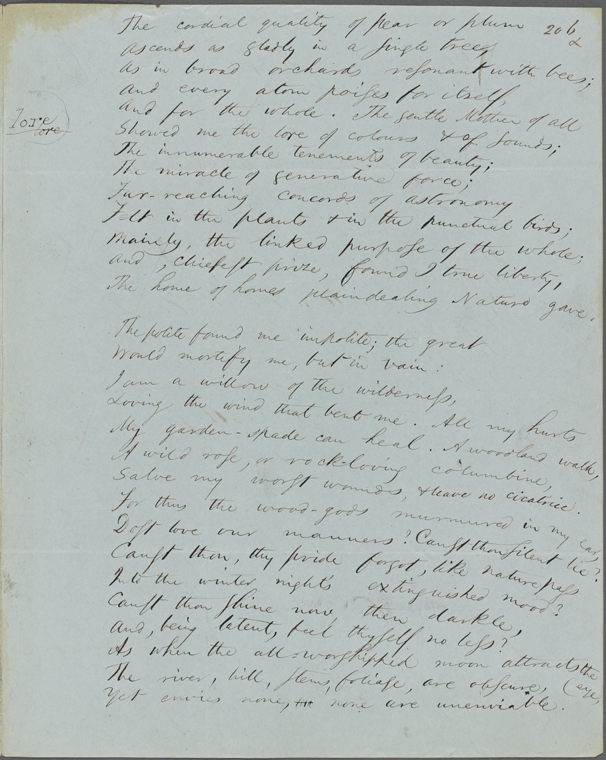 206
The cordial quality of pear or plum
Ascends as gladly in a single tree,
As in broad orchards resonant with bees;
And every atom poises for itself,
And for the whole. The gentle Mother of all
Showed me the lore of colours & of sounds;
lore
lore
The innumerable tenements of beauty;
The miracle of generative force;
Far-reaching concords of astronomy
Felt in the plants & in the punctual birds;
Mainly, the linked purpose of the whole;
And, chiefest prize, found I true liberty,
The home of homes plaindealing Nature gave.
The polite found me impolite; the great
Would mortify me, but in vain:
I am a willow of the wilderness,
Loving the wind that bent me. All my hurts
My garden-spade can heal. A woodland walk,
A wild rose, or rockloving columbine,
Salve my worst wounds, & leave no cicatrice.
For thus the wood-gods murmured in my ear,
Dost love our manners? Canst thou silent lie?
Canst thou, thy pride forgot, like nature pass
Into the winter night's extinguished mood?
Canst thou shine now, then darkle,
And, being latent, feel thyself no less?
As when the all-worshipped moon attracts the
(eye,
The river, hill, stems, foliage, are obscure,
Yet envies none, none are unenviable.